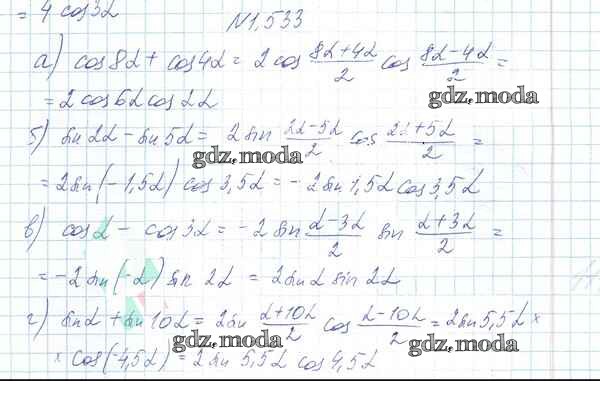 = 4 cos3α
N1,533
а) cos8α + cos4α = 2 cos (8α+4α)/2 cos (8α-4α)/2 =
gdz.moda
= 2 cos6α cos2α
б) sin2α - sin5α = 2 sin (2α-5α)/2 cos (2α+5α)/2 =
gdz.moda
= 2 sin(-1,5α) cos3,5α = -2 sin1,5α cos3,5α
в) cosα - cos3α = -2 sin (α-3α)/2 sin (α+3α)/2 =
= -2 sin(-α) sin 2α = 2 sinα sin 2α
г) sinα + sin10α = 2 sin (α+10α)/2 cos (α-10α)/2 = 2 sin5,5α ×
gdz.moda gdz.moda
× cos(-4,5α) = 2 sin 5,5α cos4,5α